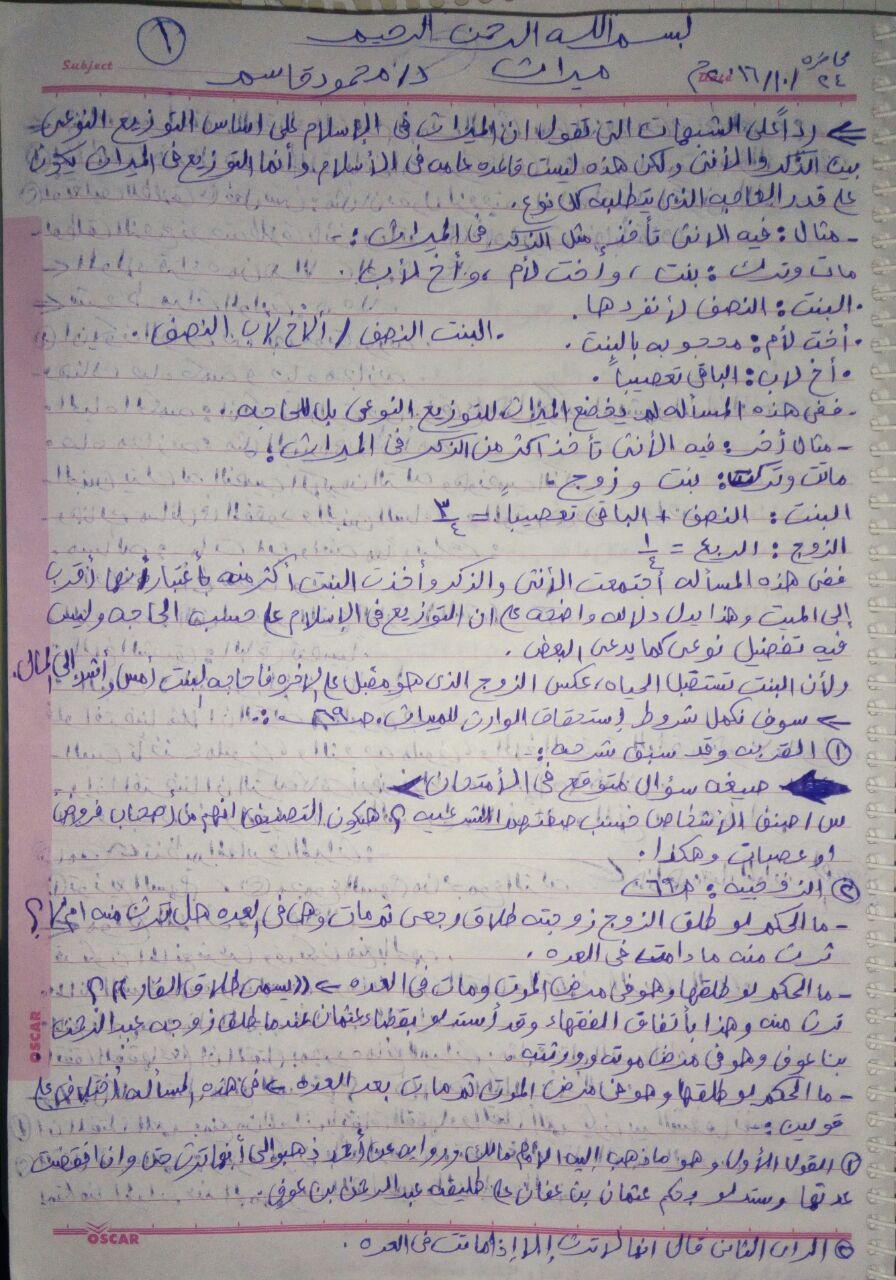 بسم الله الرحمن الرحيم
١
Subject
ميراث
د/محمود قاسم
محاضره
Date
٢٤/١٠/٢٠١٦م
ردًا على الشبهات التى تقول ان الميراث فى الإسلام على اساس التوزيع النوعى
بين الذكر والأنثى ولكن هذه ليست قاعده عامه فى الأسلام وأنما التوزيع فى الميراث يكون
على قدر الحاجه الذى تتطلبه كل نوع.
- مثال: فيه الانثى تأخذ مثل الذكر فى الميراث:
مات وترك: بنت، وأخت لأم، وأخ لأب.
• البنت: النصف لأنفردها.
• أخت لأم: محجوبه بالبنت. • البنت النصف / ألأخ لأب النصف.
• أخ لاب: الباقى تعصيباً.
- ففى هذه المسأله لم يخضع الميراث للتوزيع النوعى بل للحاجه.
- مثال أخر: فيه الأنثى تأخذ اكثر من الذكر فى الميراث!!
ماتت وتركت: بنت وزوج
البنت: النصف + الباقى تعصيباً = ٣/٤
الزوج: الربع = ١/٤
ففى هذه المسأله أجتمعت الأنثى والذكر وأخذت البنت أكثر منه بأعتبار أنها أقرب
إلى الميت وهذا يدل دلاله واضحه على ان التوزيع فى الإسلام على حسب الحاجه وليس
فيه تفضيل نوعى كما يدعى البعض.
ولأن البنت تستقبل الحياه، عكس الزوج الذى هو مقبل على الاخره فحاجه البنت أمس وأشد إلي المال.
← سوف نكمل شروط إستحقاق الوارث للميراث. صـ٦٩
① القرابه وقد سبق شرحه:
صيغه سؤال متوقع فى الأمتحان
س/ صنف الأشخاص حسب صفتهم الشرعيه؟ هيكون التصنيف انهم من أصحاب فروض
او عصبات وهكذا.
② الزوجيه: صـ٦٩
- ما الحكم لو طلق الزوج زوجته طلاق رجعى ثم مات وهى فى العده هل ترث منه ام لا؟
ترث منه ما دامت فى العده.
- ما الحكم لو طلقها وهو فى مرض الموت ومات فى العده ← ((يسمى طلاق الفار))؟
ترث منه وهذا بأتفاق الفقهاء وقد أستدلو بقضاء عثمان عندما طلق زوجه عبد الرحمن
بن عوف وهو فى مرض موته وورثته.
- ما الحكم لو طلقها وهو فى مرض الموت ثم مات بعد العده ← فى هذه المسأله أختلاف على
قولين:
① القول الأول وهو ما ذهب إليه الأمام مالك وروايه عن أحمد ذهبو إلى أنها ترث حتى وان انقضت
عدتها وستدلو بحكم عثمان بن عفان على طليقه عبد الرحمن بن عوف.
② الراى الثانى قال انها لا ترث إلا إذا مات فى العده.
OSCAR
OSCAR